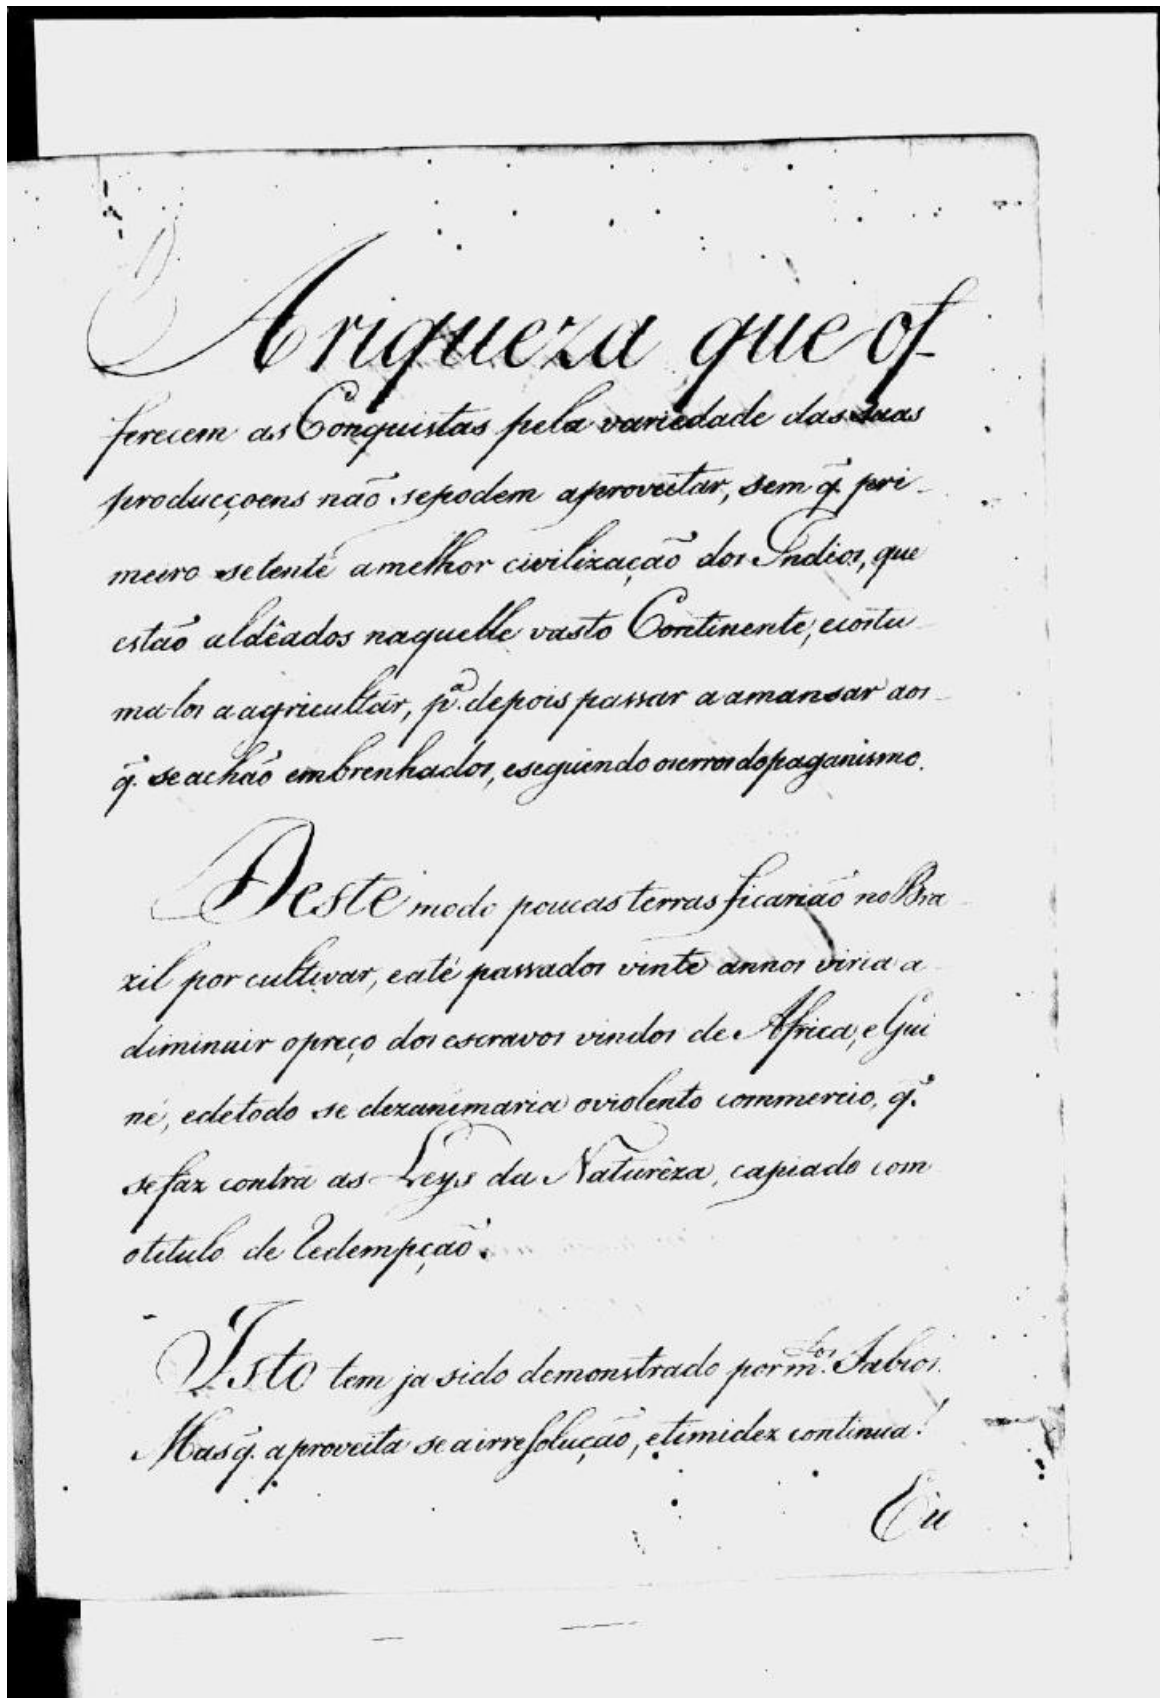 A riqueza que of-
ferecem as Conquistas pela variedade das suas
producçoens naõ sepodem aproveitar, sem q̃. pri-
meiro setente amelhor civilizaçaõ dos Indios, que
estaõ aldêados naquelle vasto Continente, ecostu-
malos aagricultar, p.ª depois passar aamansar aos
q̃. seachaõ embrenhados, eseguindo oserros dopaganismo.
Deste modo poucas terras ficariaõ no Bra-
zil por cultivar, eaté passados vinte annos viria a
diminuir opreço dos escravos vindos de Africa, e Gui
né, edetodo se dezanimaria oviolento commercio, q̃.
sefaz contra as Leys da Naturêza, capiado com
otitulo de Redempçaõ.
Isto tem ja sido demonstrado por m.tos Sabios.
Mas q̃. aproveita se airresoluçaõ, etimidez continua!
Eu